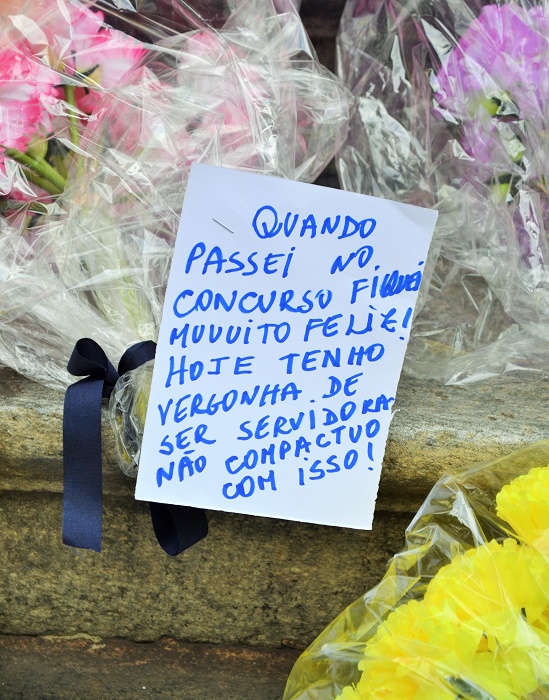 QUANDO
PASSEI NO
CONCURSO FIQUEI
MUUUITO FELIZ!
HOJE TENHO
VERGONHA DE
SER SERVIDORA.
NÃO COMPACTUO
COM ISSO!